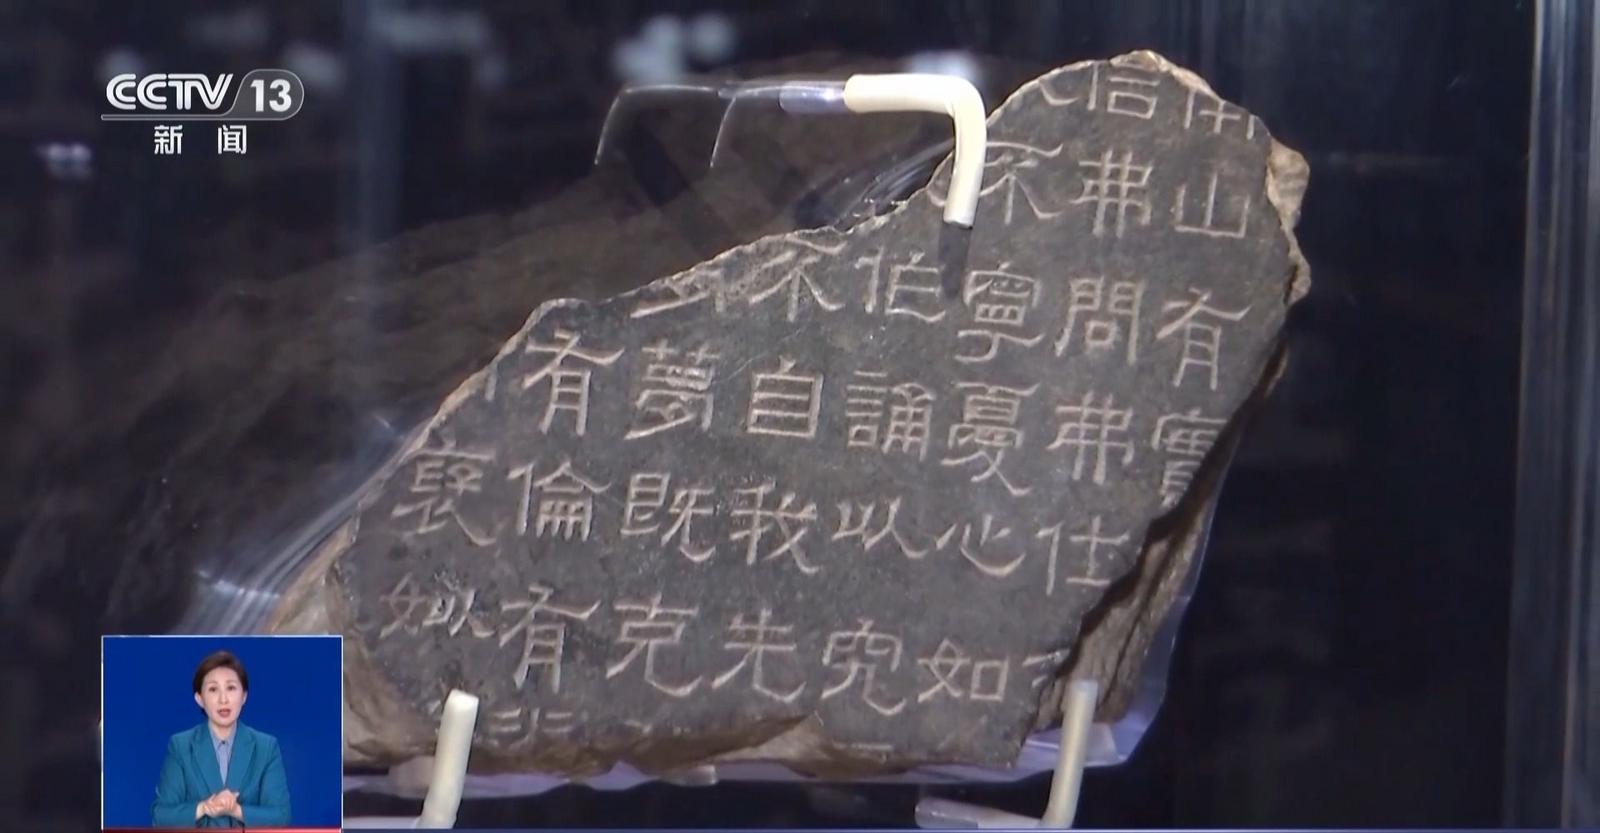 CCTV 13
新闻
南山有實
信弗問弗仕
不寧憂心如
作誦以究
不自我先
夢既克
有倫有
襃姒